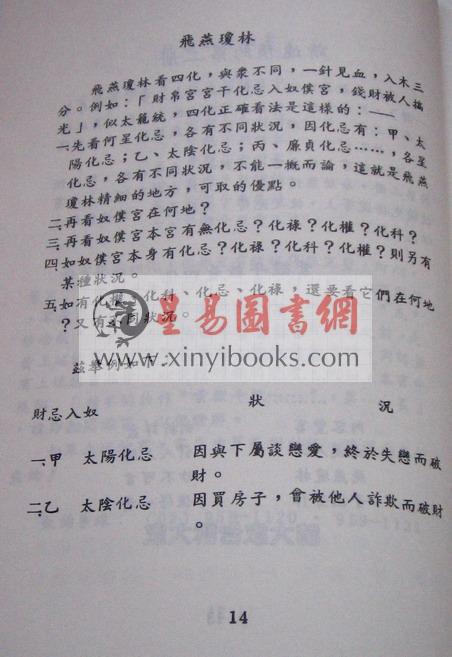 飛燕瓊林
飛燕瓊林看四化，與衆不同，一針見血，入木三
分。例如：「財帛宮宮干化忌入奴僕宮，錢財被人搞
光」，似太籠統，四化正確看法是這樣的：——
一、先看何星化忌，各有不同狀況，因化忌有：甲、太
陽化忌；乙、太陰化忌；丙、廉貞化忌……，各星
化忌，各有不同狀況，不能一概而論，這就是飛燕
瓊林精細的地方，可取的優點。
二、再看奴僕宮在何地？
三、再看奴僕宮本宮有無化忌？化祿？化權？化科？
四、如奴僕宮本身有化忌？化祿？化科？化權？則另有
某種狀況。
五、如有化權、化科、化忌、化祿，還要看它們在何地
？又有不同狀況。
星易圖書網
www.xinyibooks.com
茲舉例如下：
財忌入奴 狀 況
一、甲 太陽化忌 因與下屬談戀愛，終於失戀而破
財。
二、乙 太陰化忌 因買房子，會被他人詐欺而破財
。
14